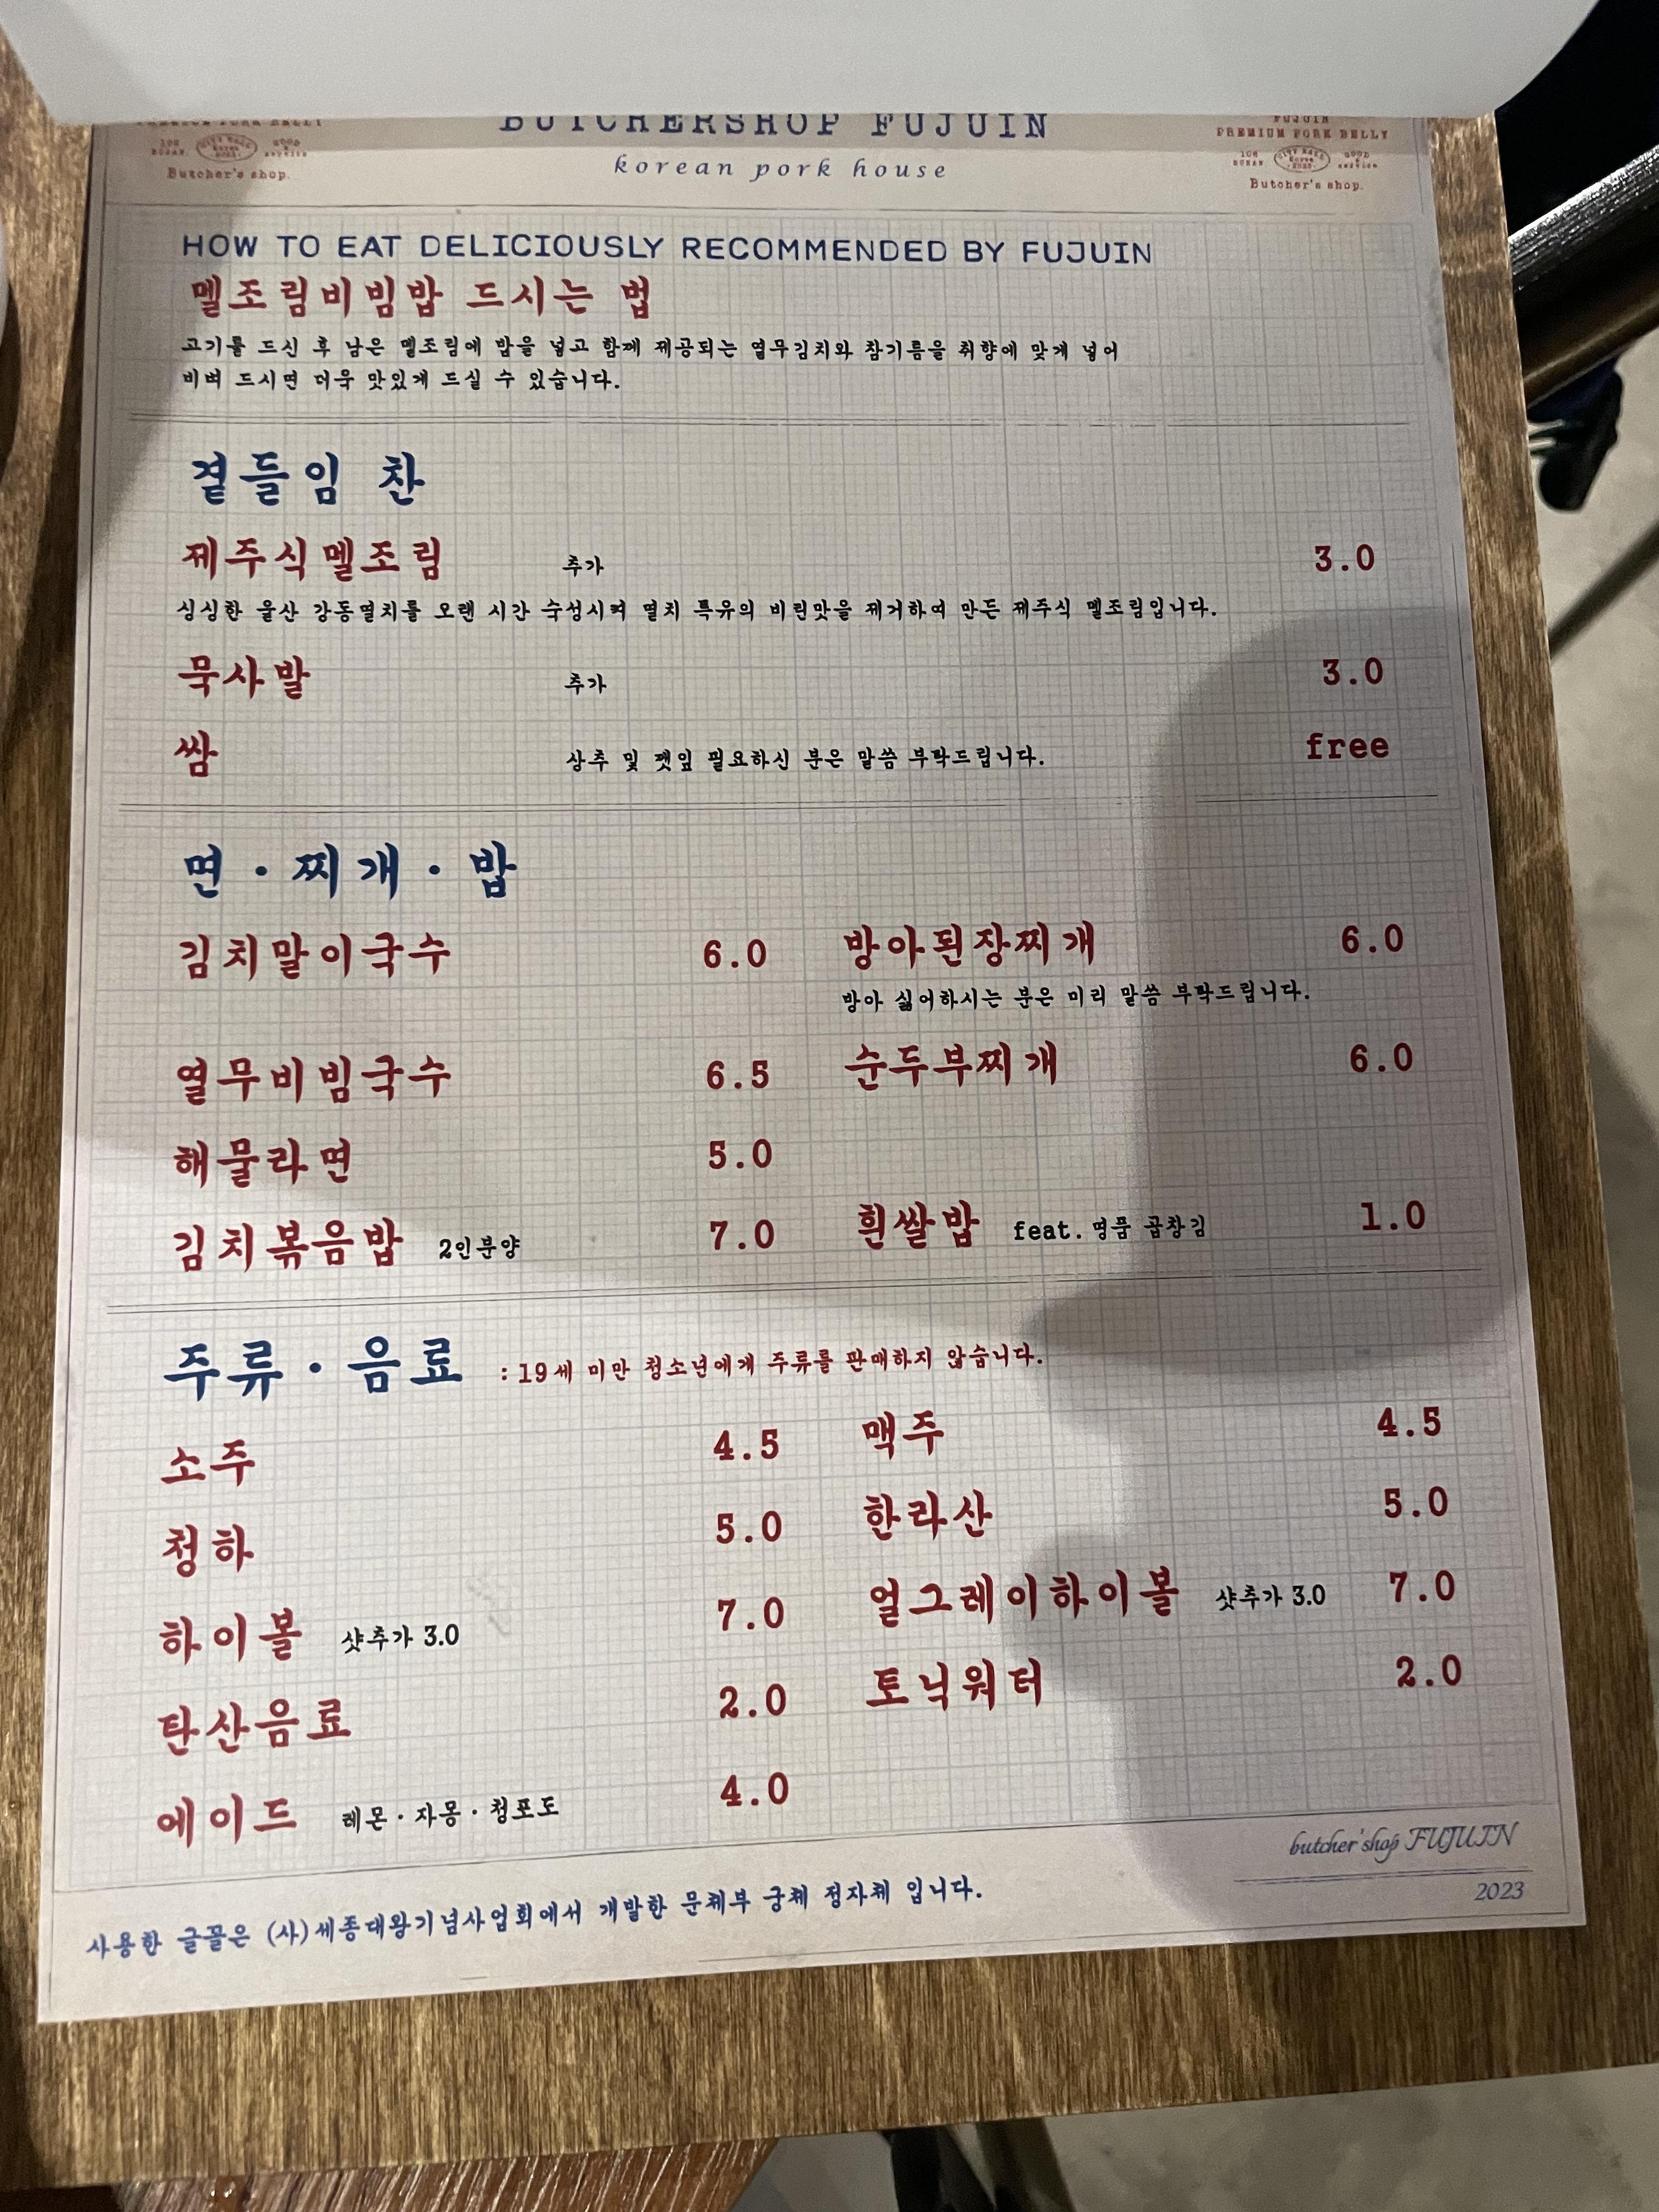 BUTCHERSHOP FUJUIN
korean pork house
PREMIUM PORK BELLY
Butcher's shop.
FUJUIN
PREMIUM PORK BELLY
106 BUSAN CITY HALL Korea 2023 GOOD service
Butcher's shop.
HOW TO EAT DELICIOUSLY RECOMMENDED BY FUJUIN
멜조림비빔밥 드시는 법
고기를 드신 후 남은 멜조림에 밥을 넣고 함께 제공되는 열무김치와 참기름을 취향에 맞게 넣어
비벼 드시면 더욱 맛있게 드실 수 있습니다.
곁들임 찬
제주식멜조림 추가 3.0
싱싱한 울산 강동멸치를 오랜 시간 숙성시켜 멸치 특유의 비린맛을 제거하여 만든 제주식 멜조림입니다.
묵사발 추가 3.0
쌈 상추 및 깻잎 필요하신 분은 말씀 부탁드립니다. free
면·찌개·밥
김치말이국수 6.0 방아된장찌개 6.0
방아 싫어하시는 분은 미리 말씀 부탁드립니다.
열무비빔국수 6.5 순두부찌개 6.0
해물라면 5.0
김치볶음밥 2인분양 7.0 흰쌀밥 feat. 명품 곱창김 1.0
주류·음료 : 19세 미만 청소년에게 주류를 판매하지 않습니다.
소주 4.5 맥주 4.5
청하 5.0 한라산 5.0
하이볼 샷추가 3.0 7.0 얼그레이하이볼 샷추가 3.0 7.0
탄산음료 2.0 토닉워터 2.0
에이드 레몬·자몽·청포도 4.0
butcher'shop FUJUIN
2023
사용한 글꼴은 (사)세종대왕기념사업회에서 개발한 문체부 궁체 정자체 입니다.